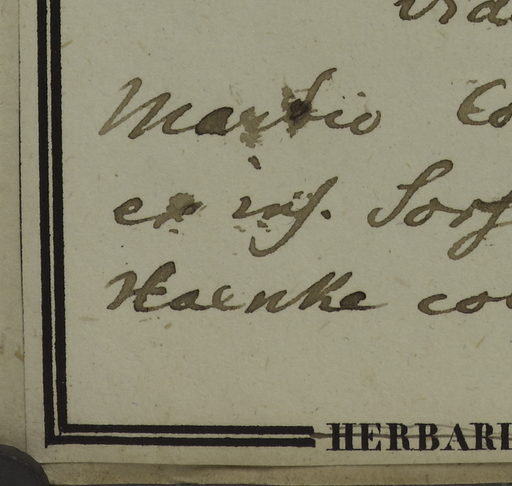 Martio
ex ins. Sorg
Haenke co
HERBARI